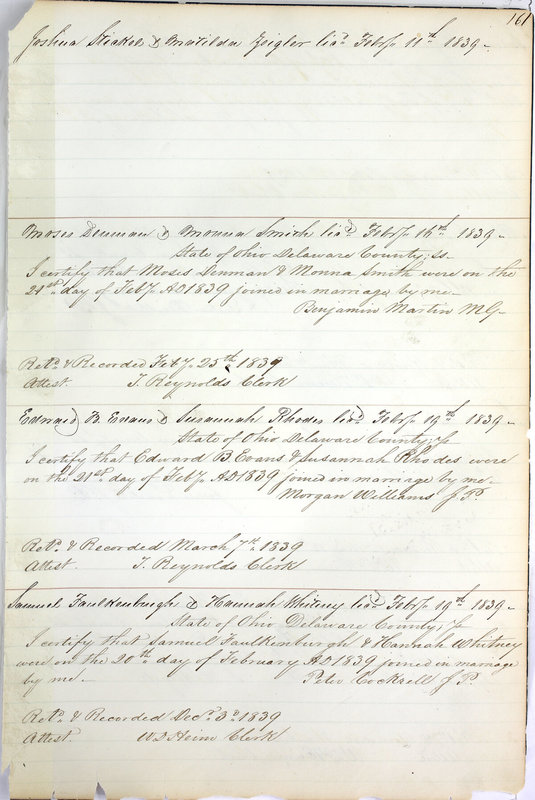 161
Joshua & Matilda Zeigler licd. Feby. 11th 1839-
Moses Denman & Monna Smith licd. Feby. 16th 1839-
State of Ohio Delaware County; Ss-
I certify that Moses Denman & Monna Smith were on the
21st day of Feby. AD 1839 joined in marriage by me-
Benjamin Martin MG-
Retd. & Recorded Feby. 25th 1839
Attest. T. Reynolds Clerk
Edward B. Evans & Susannah Rhodes licd. Feby. 19th 1839-
State of Ohio Delaware County;
I certify that Edward B Evans & Susannah Rhodes were
on the 21st day of Feby. AD 1839 joined in marriage by me-
Morgan Williams J.P.
Retd. & Recorded March 7th 1839
Attest. T. Reynolds Clerk
Samuel Faulkenburgh & Hannah Whitney licd. Feby. 19th 1839-
State of Ohio Delaware County;
I certify that Samuel Faulkenburgh & Hannah Whitney
were on the 20th day of February AD 1839 joined in marriage
by me- Peter Cockrell J.P.
Retd. & Recorded Decr. 3d. 1839
Attest. Heim Clerk